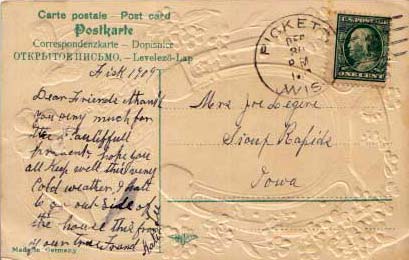 Carte postale - Post card
Postkarte
Correspondenzkarte - Dopisnice
ОТКРЫТОЕ ПИСЬМО. - Levelező-Lap
PICKETT
DEC
WIS
U.S. POSTAGE
ONE CENT
Fisk 1909
Dear Friends thank
you very much for
the
presents hope you
all keep well this very
cold weather, I
to go out side of
the house this from
your true friend
Mrs Joe
Sioux Rapids
Iowa
Made in Germany